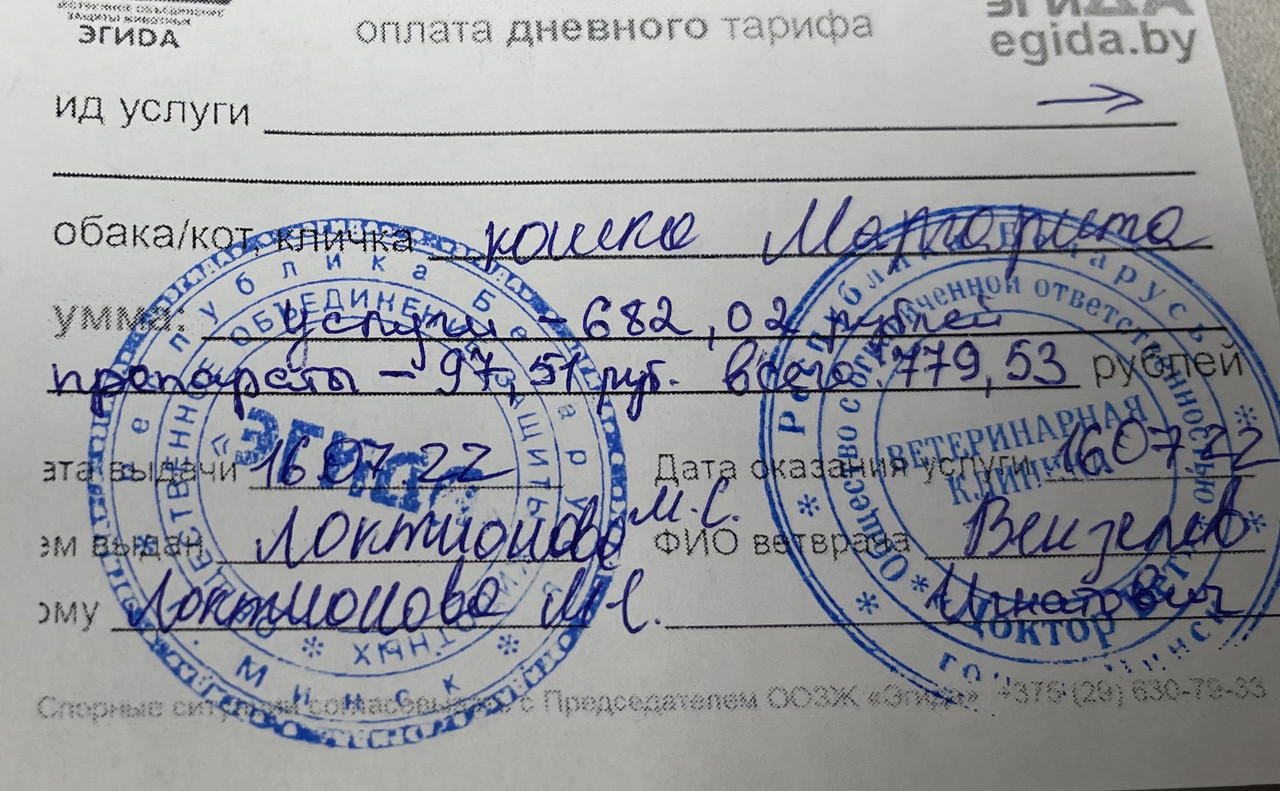 ЗАЩИТЫ ЖИВОТНЫХ
ЭГИДА
оплата дневного тарифа
ЭГИДА
egida.by
ид услуги
обака/кот, кличка кошка Маргарита
умма: услуги - 682,02 рублей
препараты - 97,51 руб. всего 779,53 рублей
ата выдачи 16.07.22 Дата оказания услуги 16.07.22
ем выдан Локтионова М.С. ФИО ветврача Вензелев
ому Локтионова М.С. Игнатович
Спорные ситуации согласовывать с Председателем ООЗЖ «Эгида» +375 (29) 630-79-33
Республика Беларусь
г. Минск
ОБЩЕСТВЕННОЕ ОБЪЕДИНЕНИЕ ЗАЩИТЫ ЖИВОТНЫХ
«ЭГИДА»
Республика Беларусь
Общество с ограниченной ответственностью
ВЕТЕРИНАРНАЯ
КЛИНИКА
Доктор Вет